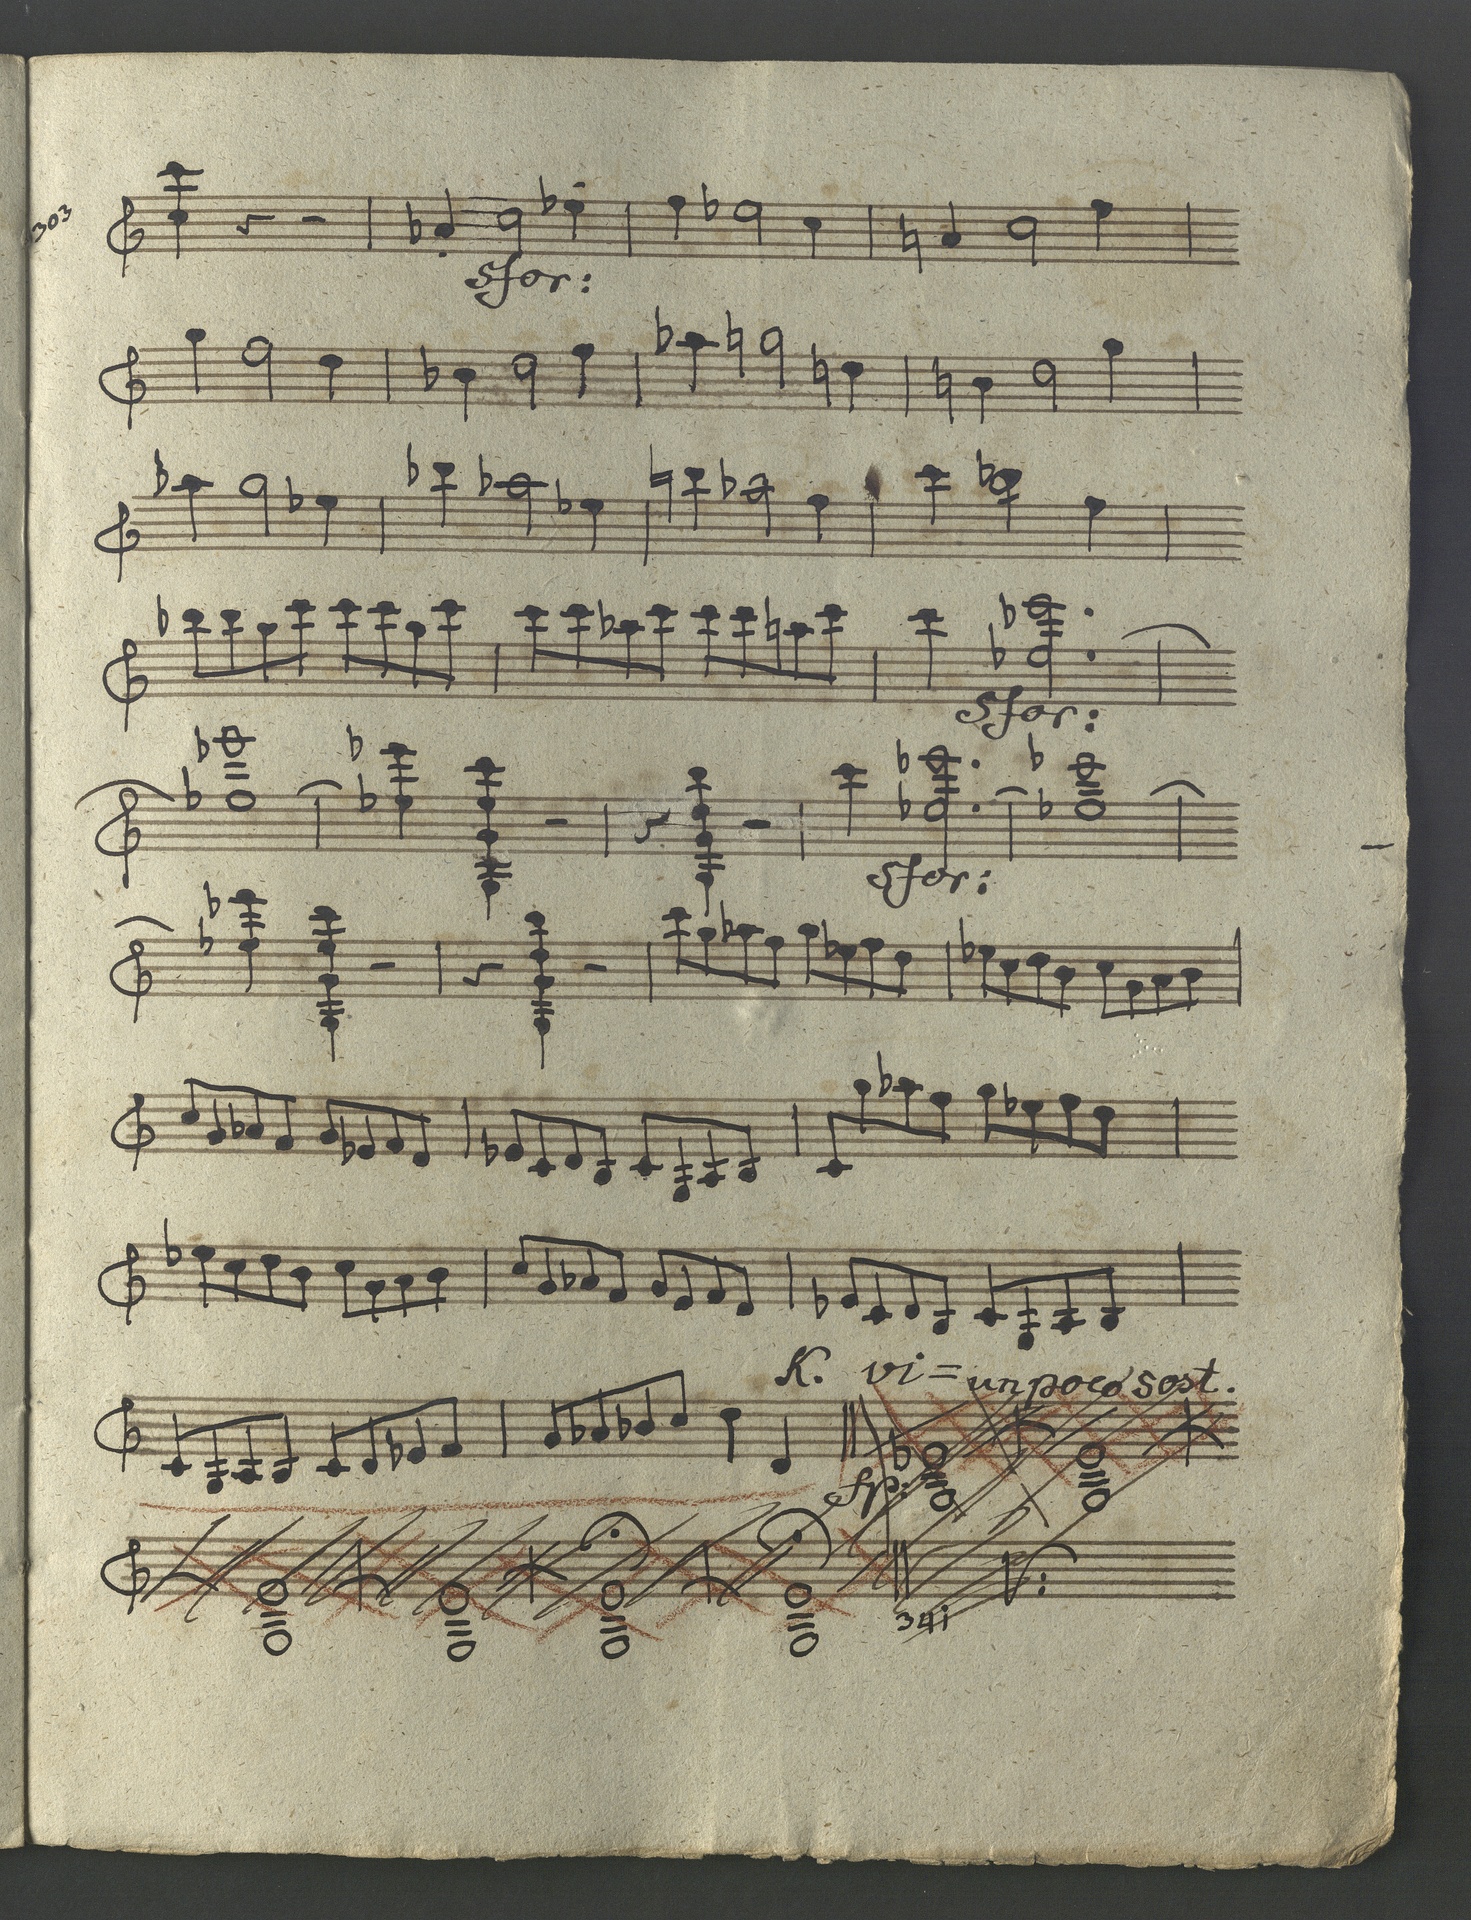 303
sfor:
sfor:
sfor:
K. vi= un poco sost.
fp:
34i
V: